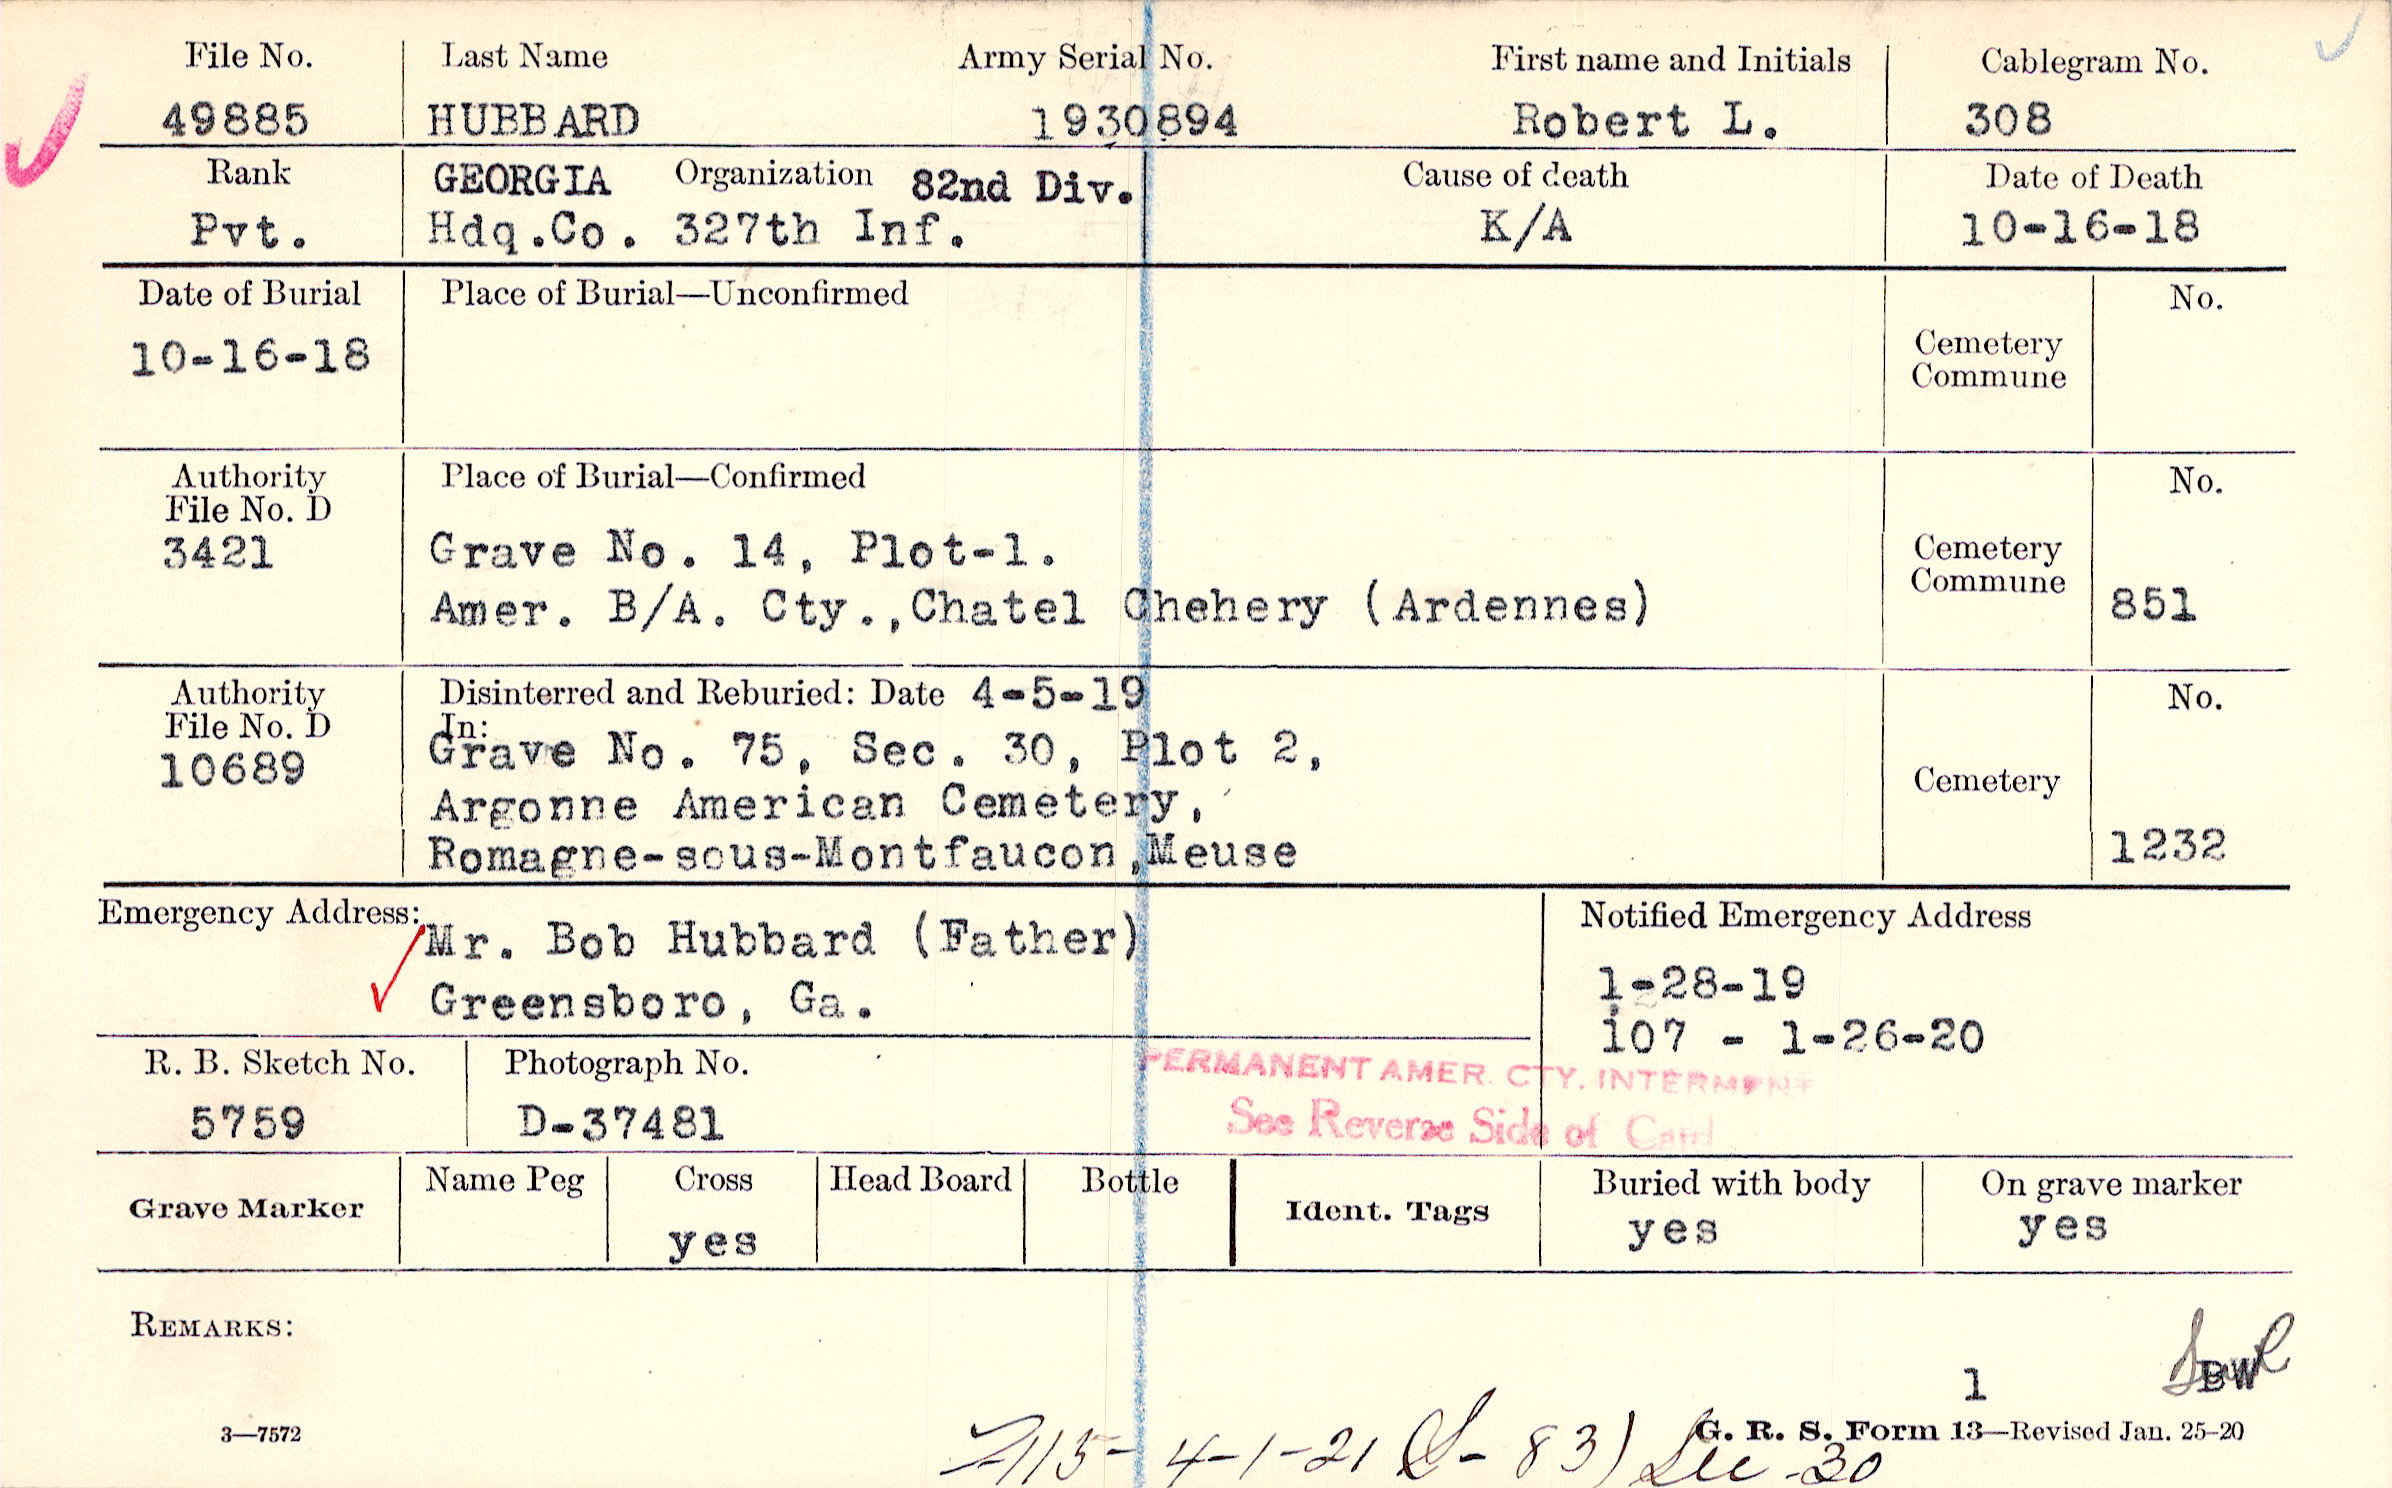 File No. Last Name Army Serial No. First name and Initials Cablegram No.
49885 HUBBARD 1930894 Robert L. 308
Rank GEORGIA Organization 82nd Div. Cause of death Date of Death
Pvt. Hdq.Co. 327th Inf. K/A 10-16-18
Date of Burial Place of Burial—Unconfirmed No.
10-16-18 Cemetery
Commune
Authority Place of Burial—Confirmed No.
File No. D
3421 Grave No. 14, Plot-1. Cemetery
Commune
Amer. B/A. Cty.,Chatel Chehery (Ardennes) 851
Authority Disinterred and Reburied: Date 4-5-19 No.
File No. D In:
10689 Grave No. 75, Sec. 30, Plot 2,
Argonne American Cemetery, Cemetery
Romagne-sous-Montfaucon,Meuse 1232
Emergency Address: Notified Emergency Address
Mr. Bob Hubbard (Father)
Greensboro, Ga. 1-28-19
107 - 1-26-20
R. B. Sketch No. Photograph No. PERMANENT AMER. CTY. INTERMENT
5759 D-37481 See Reverse Side of Card
Grave Marker Name Peg Cross Head Board Bottle Ident. Tags Buried with body On grave marker
yes yes yes
REMARKS:
1 BW
3—7572 G. R. S. Form 13—Revised Jan. 25-20
4-1-21 83) 30